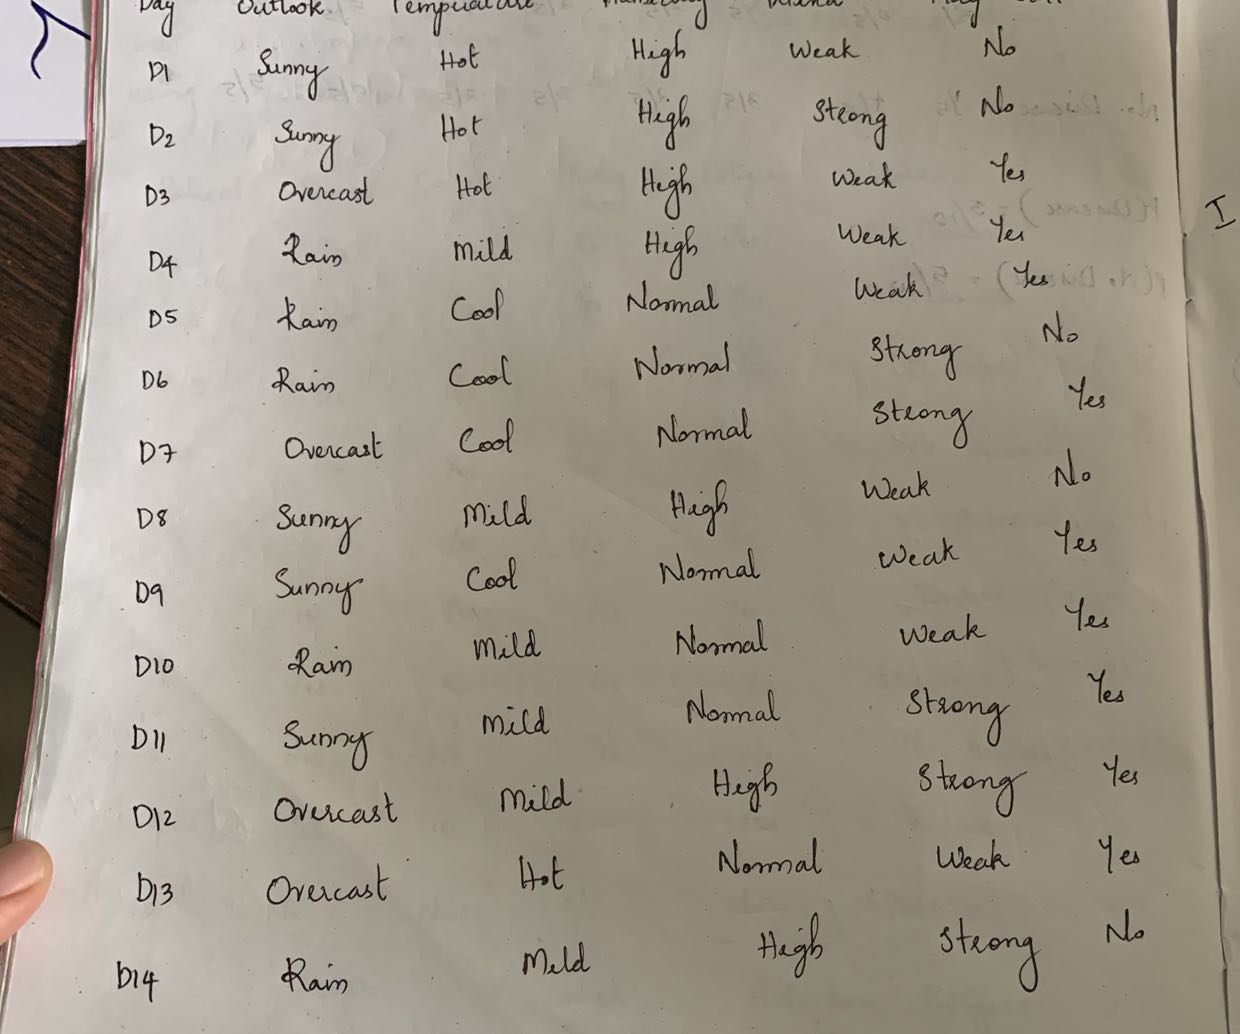 Day Outlook Temperature Humidity Wind
D1 Sunny Hot High Weak No
D2 Sunny Hot High Strong No
D3 Overcast Hot High Weak Yes
D4 Rain Mild High Weak Yes
D5 Rain Cool Normal Weak Yes
D6 Rain Cool Normal Strong No
D7 Overcast Cool Normal Strong Yes
D8 Sunny Mild High Weak No
D9 Sunny Cool Normal Weak Yes
D10 Rain Mild Normal Weak Yes
D11 Sunny Mild Normal Strong Yes
D12 Overcast Mild High Strong Yes
D13 Overcast Hot Normal Weak Yes
D14 Rain Mild High Strong No
I